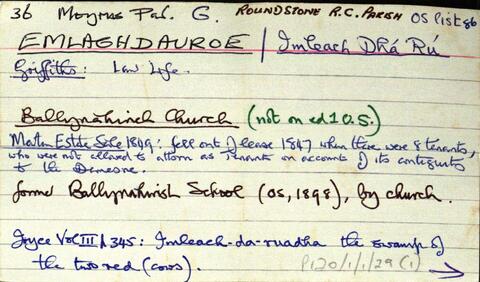 36 Moyrus Par. G. ROUNDSTONE R.C. PARISH OS list 86
EMLAGHDAUROE / Imleach Dhá Rú
Griffiths: Law Life.
Ballynahinch Church (not on ed 1 O.S.)
Martin Estate Sale 1849: fell out of lease 1847 when there were 8 tenants,
who were not allowed to attorn as tenants on account of its contiguity
to the Demesne.
former Ballynahinch School (OS, 1898), by church.
Joyce Vol III p345: Imleach-da-ruadha the swamp of
the two red (cows). P120/1/1/29 (1)